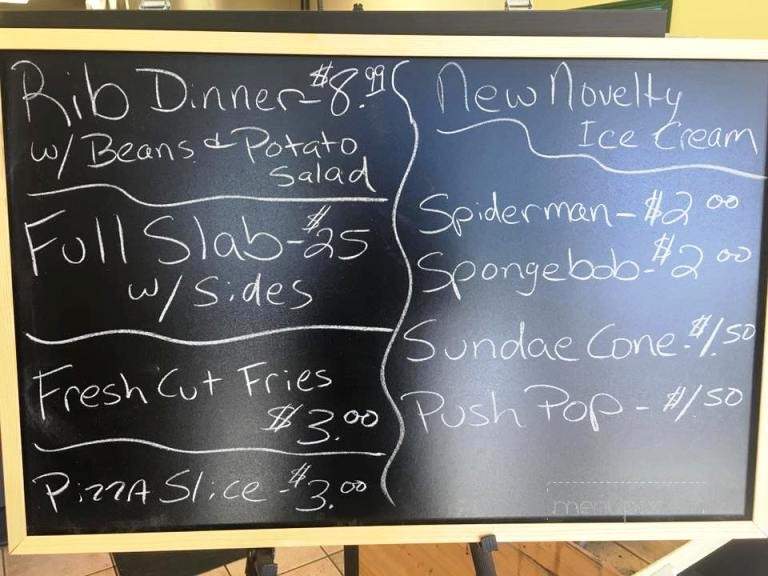 Rib Dinner-$8.99
w/ Beans & Potato
Salad
Full Slab-$25
w/ Sides
Fresh Cut Fries
$3.00
Pizza Slice-$3.00
New Novelty
Ice Cream
Spiderman-$2.00
Spongebob-$2.00
Sundae Cone-$1.50
Push Pop-$1.50